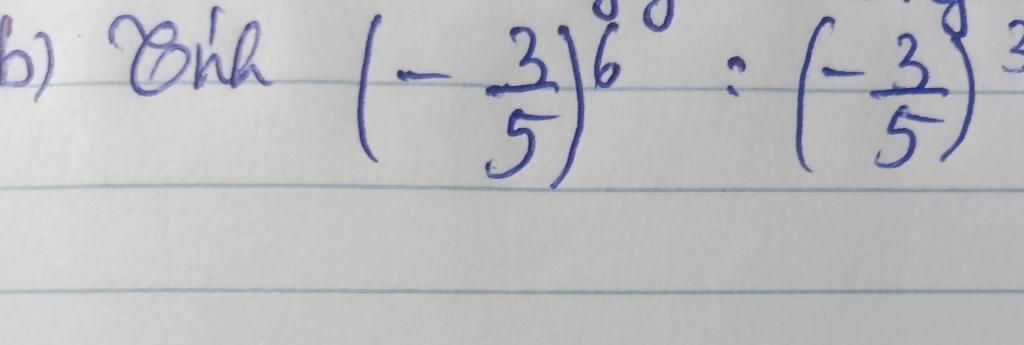 b) Tính (- 3/5)^6 : (- 3/5)^3